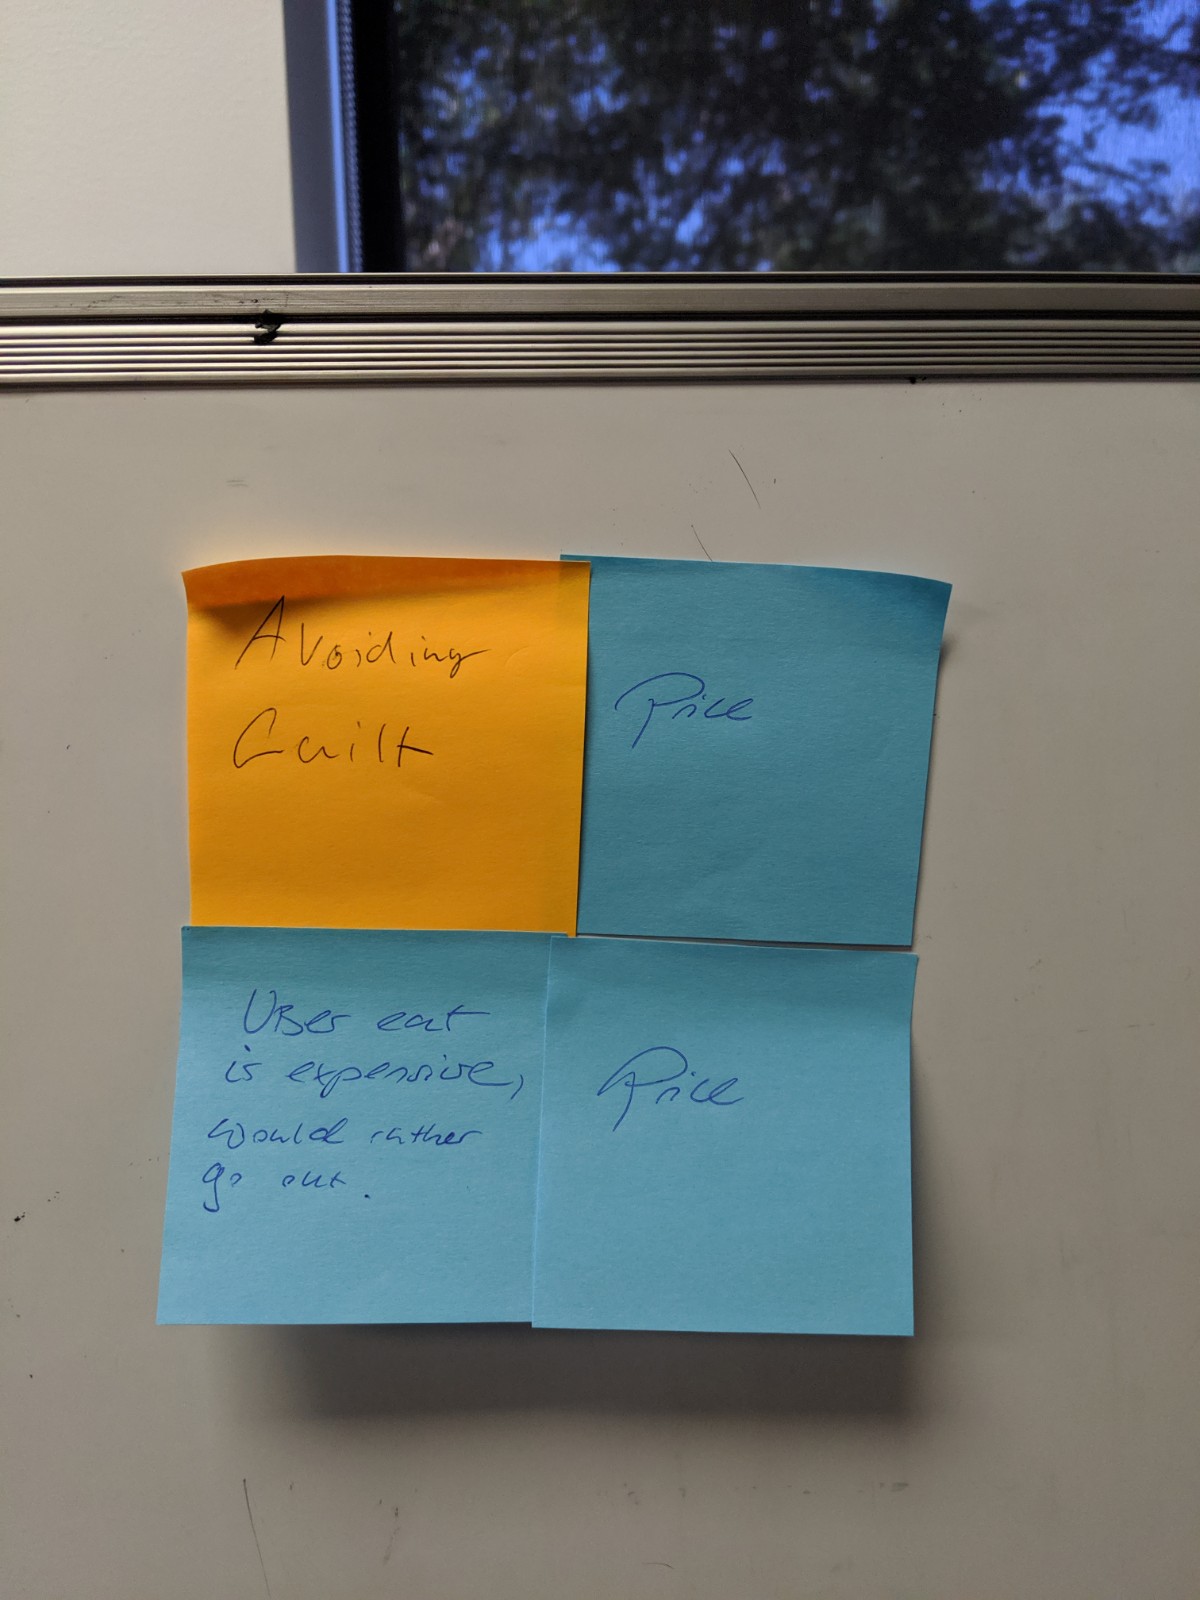 Avoiding
Guilt
Price
UBer eat
is expensive,
would rather
go out.
Price